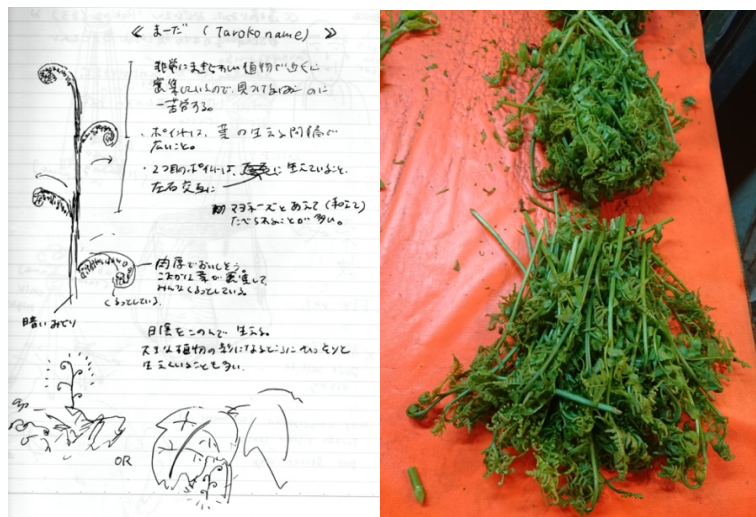 ≪ まーだ (Taroko name) ≫
非常にまぎらわしい植物が近くに
密集しているので、見つけるのに
一苦労する。
・ポイントは、葉の生える間隔が
広いこと。
・2つ目のポイントは、に生えていること、
左右交互に
マヨネーズとあえて(和えて)
たべられることが多い。
肉厚でおいしそう。
こまかな葉が密集して、
みんなくるっとしている。
くるっとしている。
暗いみどり
日陰をこのんで生える。
大きな植物の影になるところにひっそりと
生えていることも多い。
OR